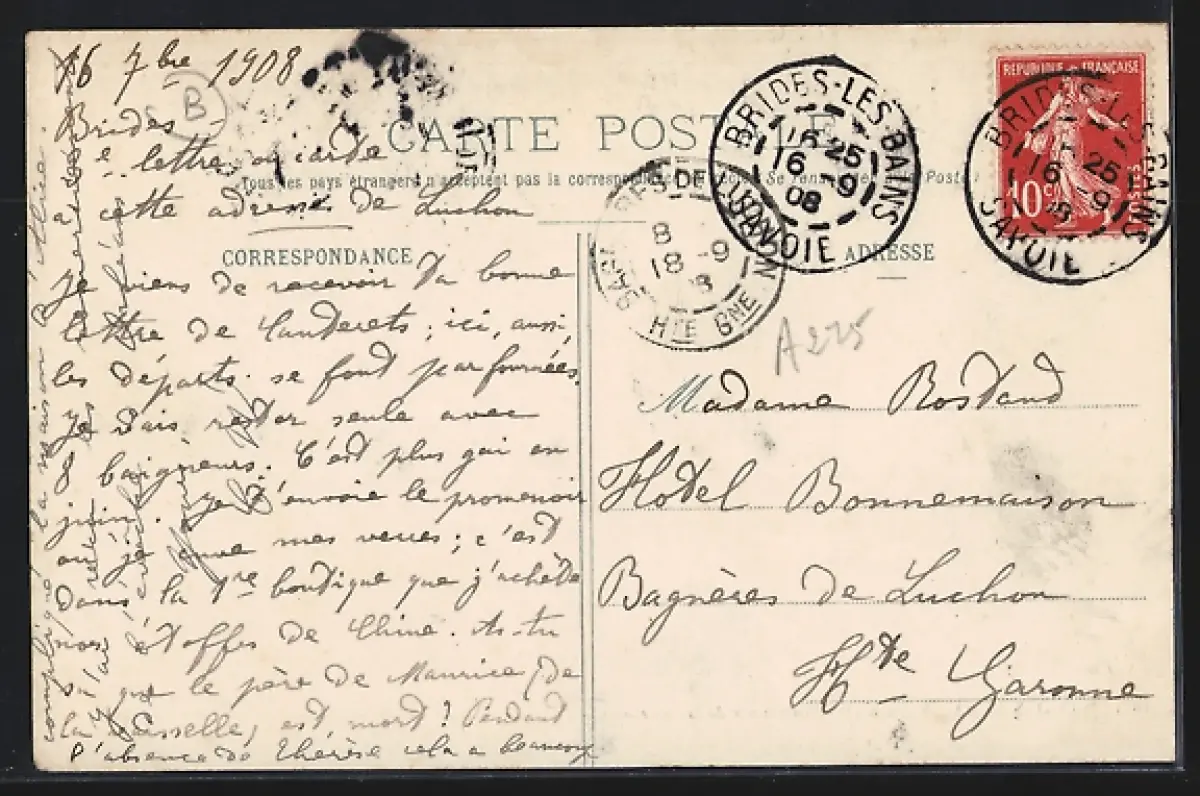 16 7bre 1908
Brides
B
e lettre ou carte
à cette adresse de Luchon
CARTE POSTALE
Tous les pays étrangers n'acceptent pas la correspondance
CORRESPONDANCE
ADRESSE
Je viens de recevoir ta bonne
lettre de Cauterets ; ici, aussi,
les départs se font par fournées.
Je vais rester seule avec
8 baigneurs. C'est plus gai en
juin. Je t'envoie le promenoir
où je cuve mes verres ; c'est
dans la 1re boutique que j'achète
nos étoffes de Chine. As-tu
su que le père de Maurice (de
la Nasselle) est mort ? Pendant
l'absence de Thérèse cela a beaucoup
compliqué la maison
REPUBLIQUE FRANÇAISE
10c
POSTES
BRIDES-LES-BAINS
16 25
16 -9
08
SAVOIE
BRIDES-LES-BAINS
16 25
16 -9
08
SAVOIE
8
18 -9
8
HTE GNE
A225
Madame Rostand
Hôtel Bonnemaison
Bagnères de Luchon
Hte Garonne